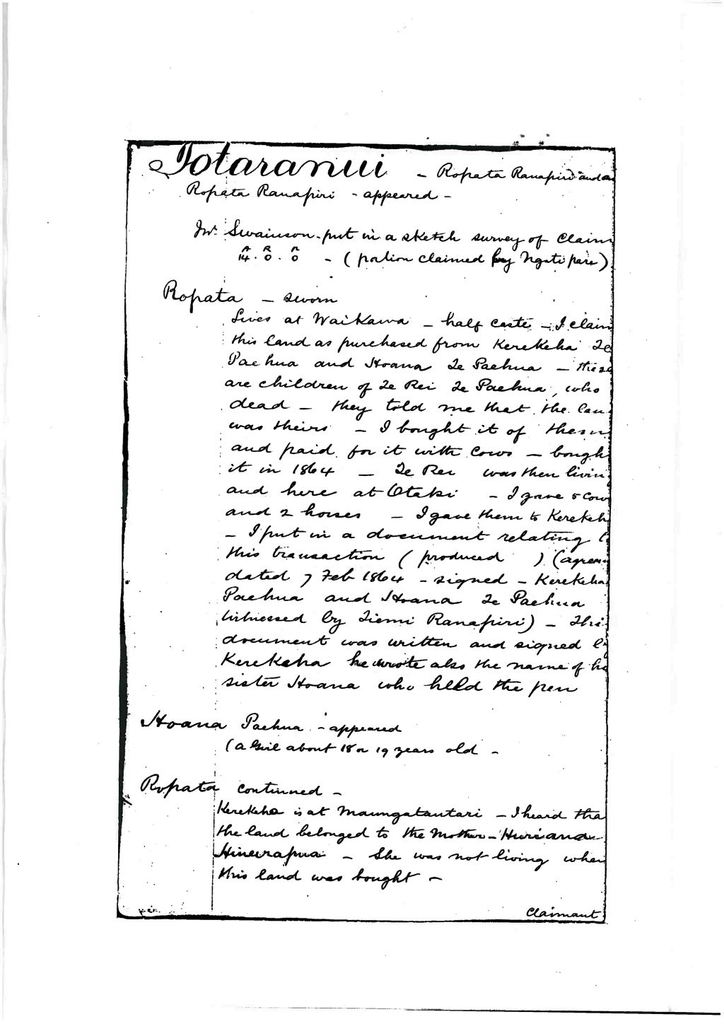 Totaranui - Ropata Ranapiri and
Ropata Ranapiri - appeared -
Mr. Swainson put in a sketch survey of Claim
A R P
14. 0. 0 - (portion claimed by Ngati pare)
Ropata - sworn
Lives at Waikawa - half caste - I claim
this land as purchased from Kerekeha Te
Paehua and Hoana Te Paehua - these
are children of Te Rei Te Paehua, who
dead - they told me that the lan
was theirs - I bought it of them
and paid for it with cows - bough
it in 1864 - Te Rei was then livin
and here at Otaki - I gave 5 cow
and 2 horses - I gave them to Kerekeh
- I put in a document relating t
this transaction (produced ) (agree
dated 7 Feb 1864 - signed - Kerekeha
Paehua and Hoana Te Paehua
witnessed by Tiemi Ranapiri) - This
document was written and signed b
Kerekeha he wrote also the name of his
sister Hoana who held the pen
Hoana Paehua - appeared
(a Girl about 18 or 19 years old -
Ropata continued -
Kerekeha is at Maungatautari - I heard tha
the land belonged to the Mother -
- She was not living when
this land was bought -
Claimant